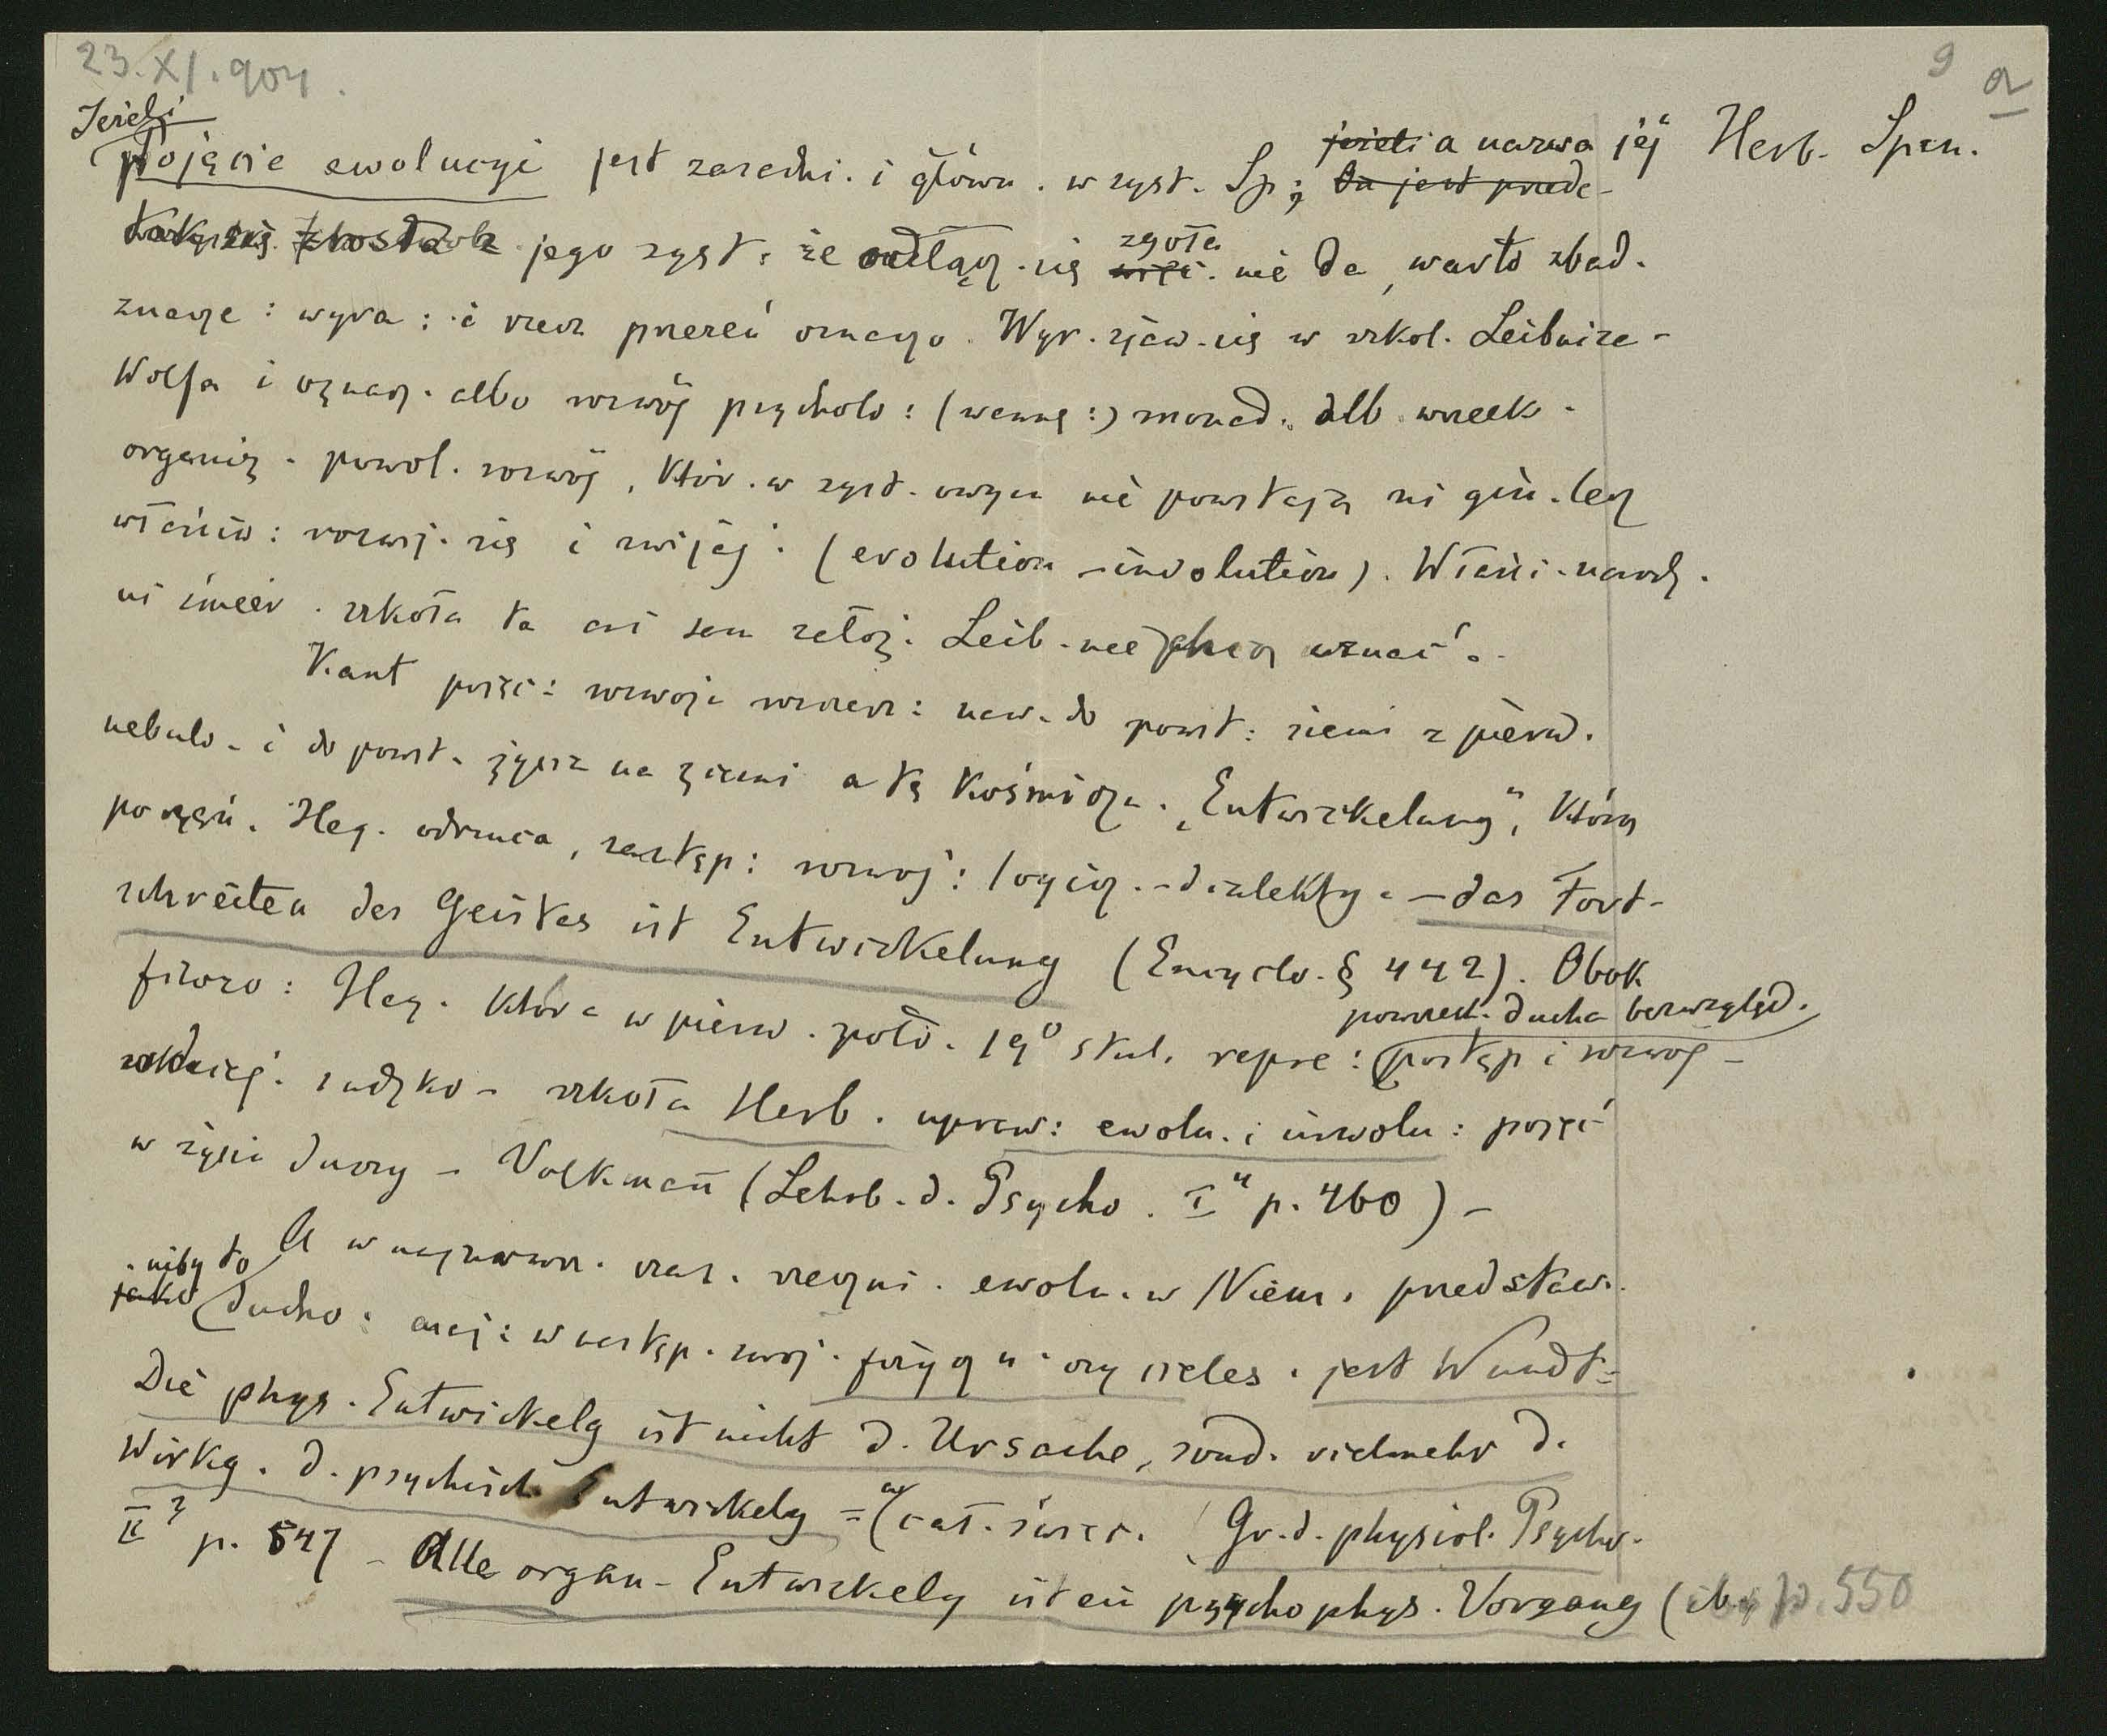 23.XI.904.
9 a
Jeżeli
pojęcie ewolucyi jest zasadni. i główn. w syst. Sp; jeżeli a nazwa jej Herb. Spen.
On jest przede-
jego syst. że odłącz. się zgoła nie da, warto zbad.
znacze: wyra: i rzecz przezeń oznaczo. Wyr. zjaw. się w szkol. Leibniza-
Wolfa i oznacz. albo rozwój psycholo: (wewnę:) monad. alb wszelk.
organiz. powol. rozwój, któr. w syst. owym nie powstają ni gin. lecz
właściw: rozwij. się i zwijaj. (evolution - involution). Właści. narodz.
ni śmier. szkoła ta ani sam założ. Leib. nie chcą uznać.
Kant poję: rozwoju rozszerz: naw. do powst: ziemi z pierw.
nebulo. i do powst. życia na ziemi a tę kosmicz. „Entwickelung", którą
po części. Heg. odrzuca, zastęp: rozwoj: logicz. - dialekty. — das Fort-
schreiten des Geistes ist Entwickelung (Encyclo. § 442). Obok
filozo: Heg. która w pierw. poło. 19⁰ stul. repre: postęp i rozwój -
powszech. ducha bezwzględ.
szkoła Herb. upraw: ewolu. i inwolu: pojęć
w życiu duszy - Volkmann (Lehrb. d. Psycho. I⁴ p. 460) -
A w najnowsz. czas. rzeczni. ewolu. w Niem. przedstaw.
niby to
jako ducho: maj: w następ. swoj. fizyczn. czy cieles. jest Wundt-
Die phys. Entwickelg ist nicht d. Ursache, sond. vielmehr d.
Wirkg. d. psychisch Entwickelg = (cał. świat. (Gr. d. physiol. Psycho.
II² p. 547 - Alle organ- Entwickelg ist ein psychophys. Vorgang (ib. p. 550